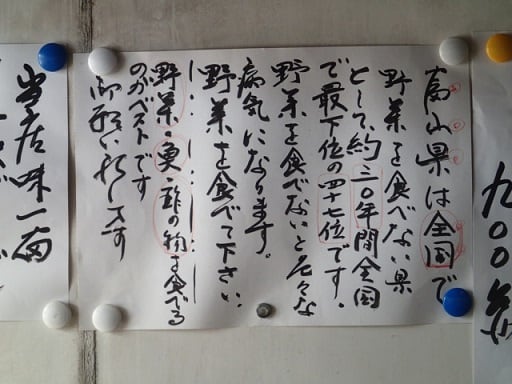 九〇〇
富山県は全国で
野菜を食べない県
として、約三〇年間全国
で最下位の四十七位です。
野菜を食べないと色々な
病気になります。
野菜を食べて下さい。
野菜・夏・酢の物を食べる
のがベストです
お願い致します
当店味一番